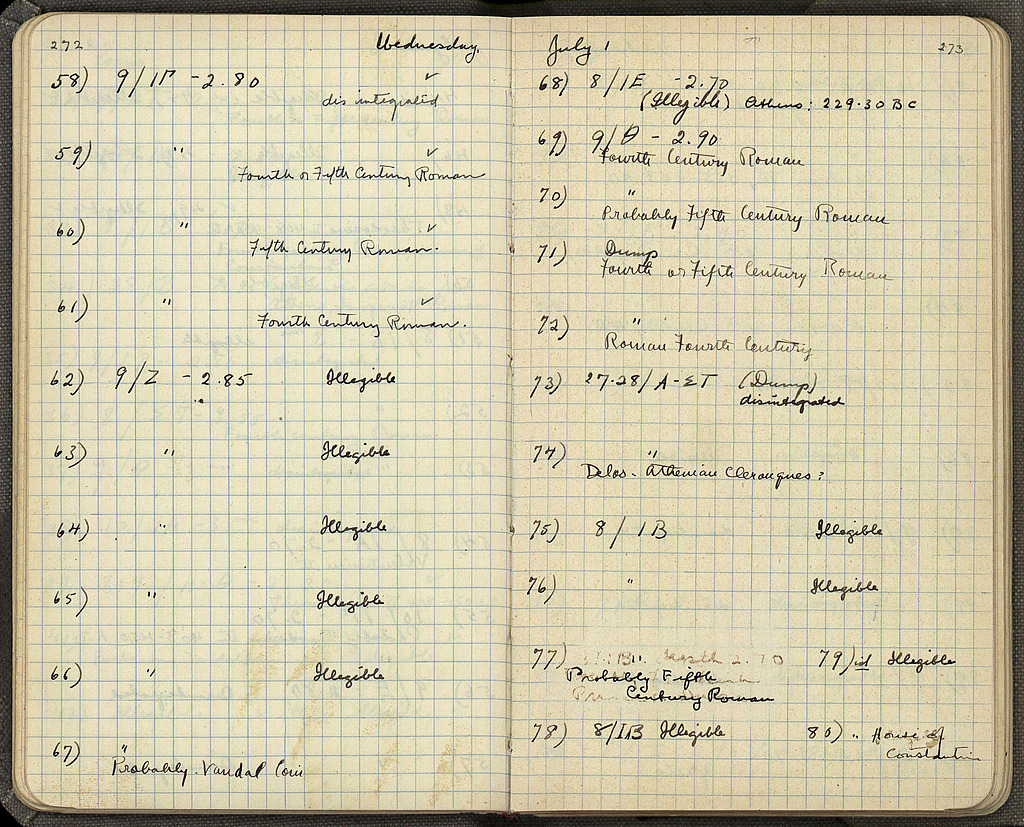 272 Wednesday,
58) 9/ΙΓ - 2.80 ✓
disintegrated
59) " ✓
Fourth or Fifth Century Roman
60) " ✓
Fifth Century Roman.
61) " ✓
Fourth Century Roman.
62) 9/Z - 2.85 Illegible
63) " Illegible
64) " Illegible
65) " Illegible
66) " Illegible
67) "
Probably Vandal Coin
July 1 273
68) 8/ΙΕ - 2.70
(Illegible) Athens: 229-30 BC
69) 9/Θ - 2.90
Fourth Century Roman
70) "
Probably Fifth Century Roman
71) Dump
Fourth or Fifth Century Roman
72) "
Roman Fourth Century
73) 27-28/A-ΣΤ (Dump)
disintegrated
74) "
Delos - Athenian Clerouques?
75) 8/ΙΒ Illegible
76) " Illegible
77) " 2.70 79) id Illegible
Probably Fifth
Century Roman
78) 8/ΙΒ Illegible 80) " House of
Constantin